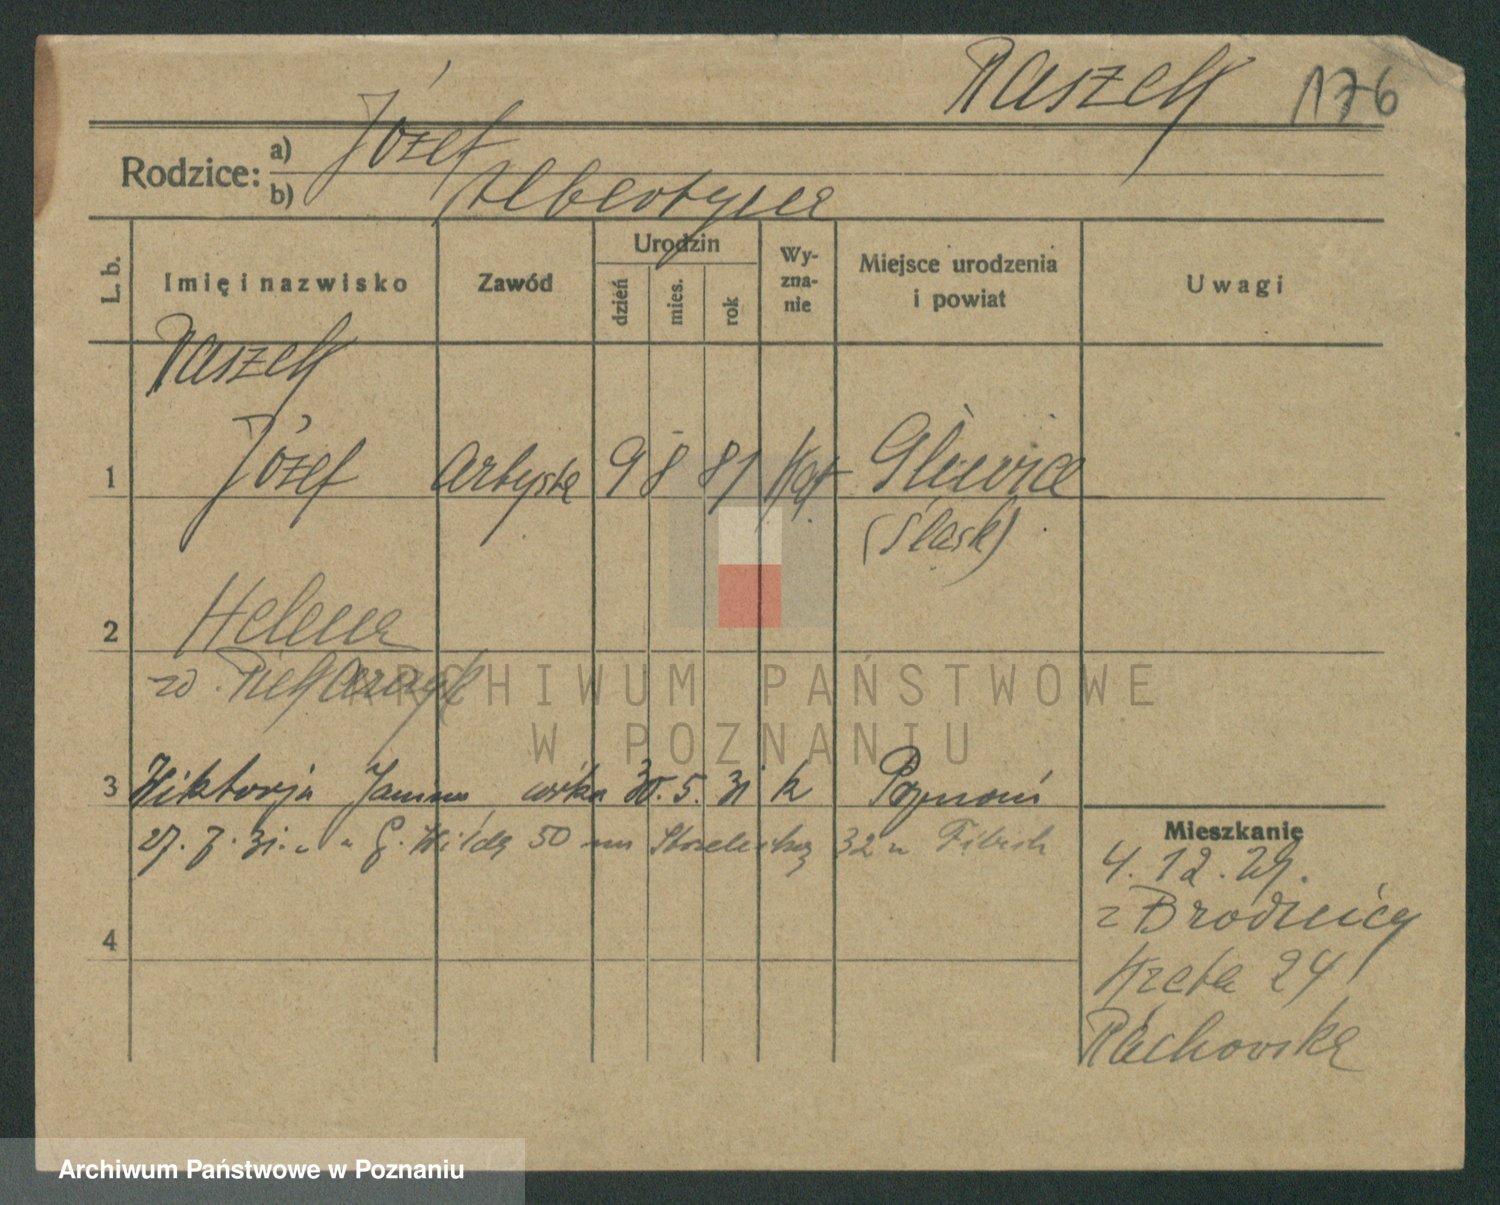 Raszek 176
Rodzice: a) Józef
b) Albertyna
L. b. Imię i nazwisko Zawód Urodzin dzień mies. rok Wy-zna-nie Miejsce urodzenia i powiat Uwagi
Raszek
1 Józef artysta 9 8 81 kat Gliwice
(Śląsk)
2 Helena
3 Wiktorja Janina córka 30. 5. 31 k Poznań
27. 7. 31. G. Wildę 50 na Strzelecką 32 u
Mieszkanie
4. 12. 29.
z Brodnicy
4 Kręta 24
ARCHIWUM PAŃSTWOWE
W POZNANIU
Archiwum Państwowe w Poznaniu